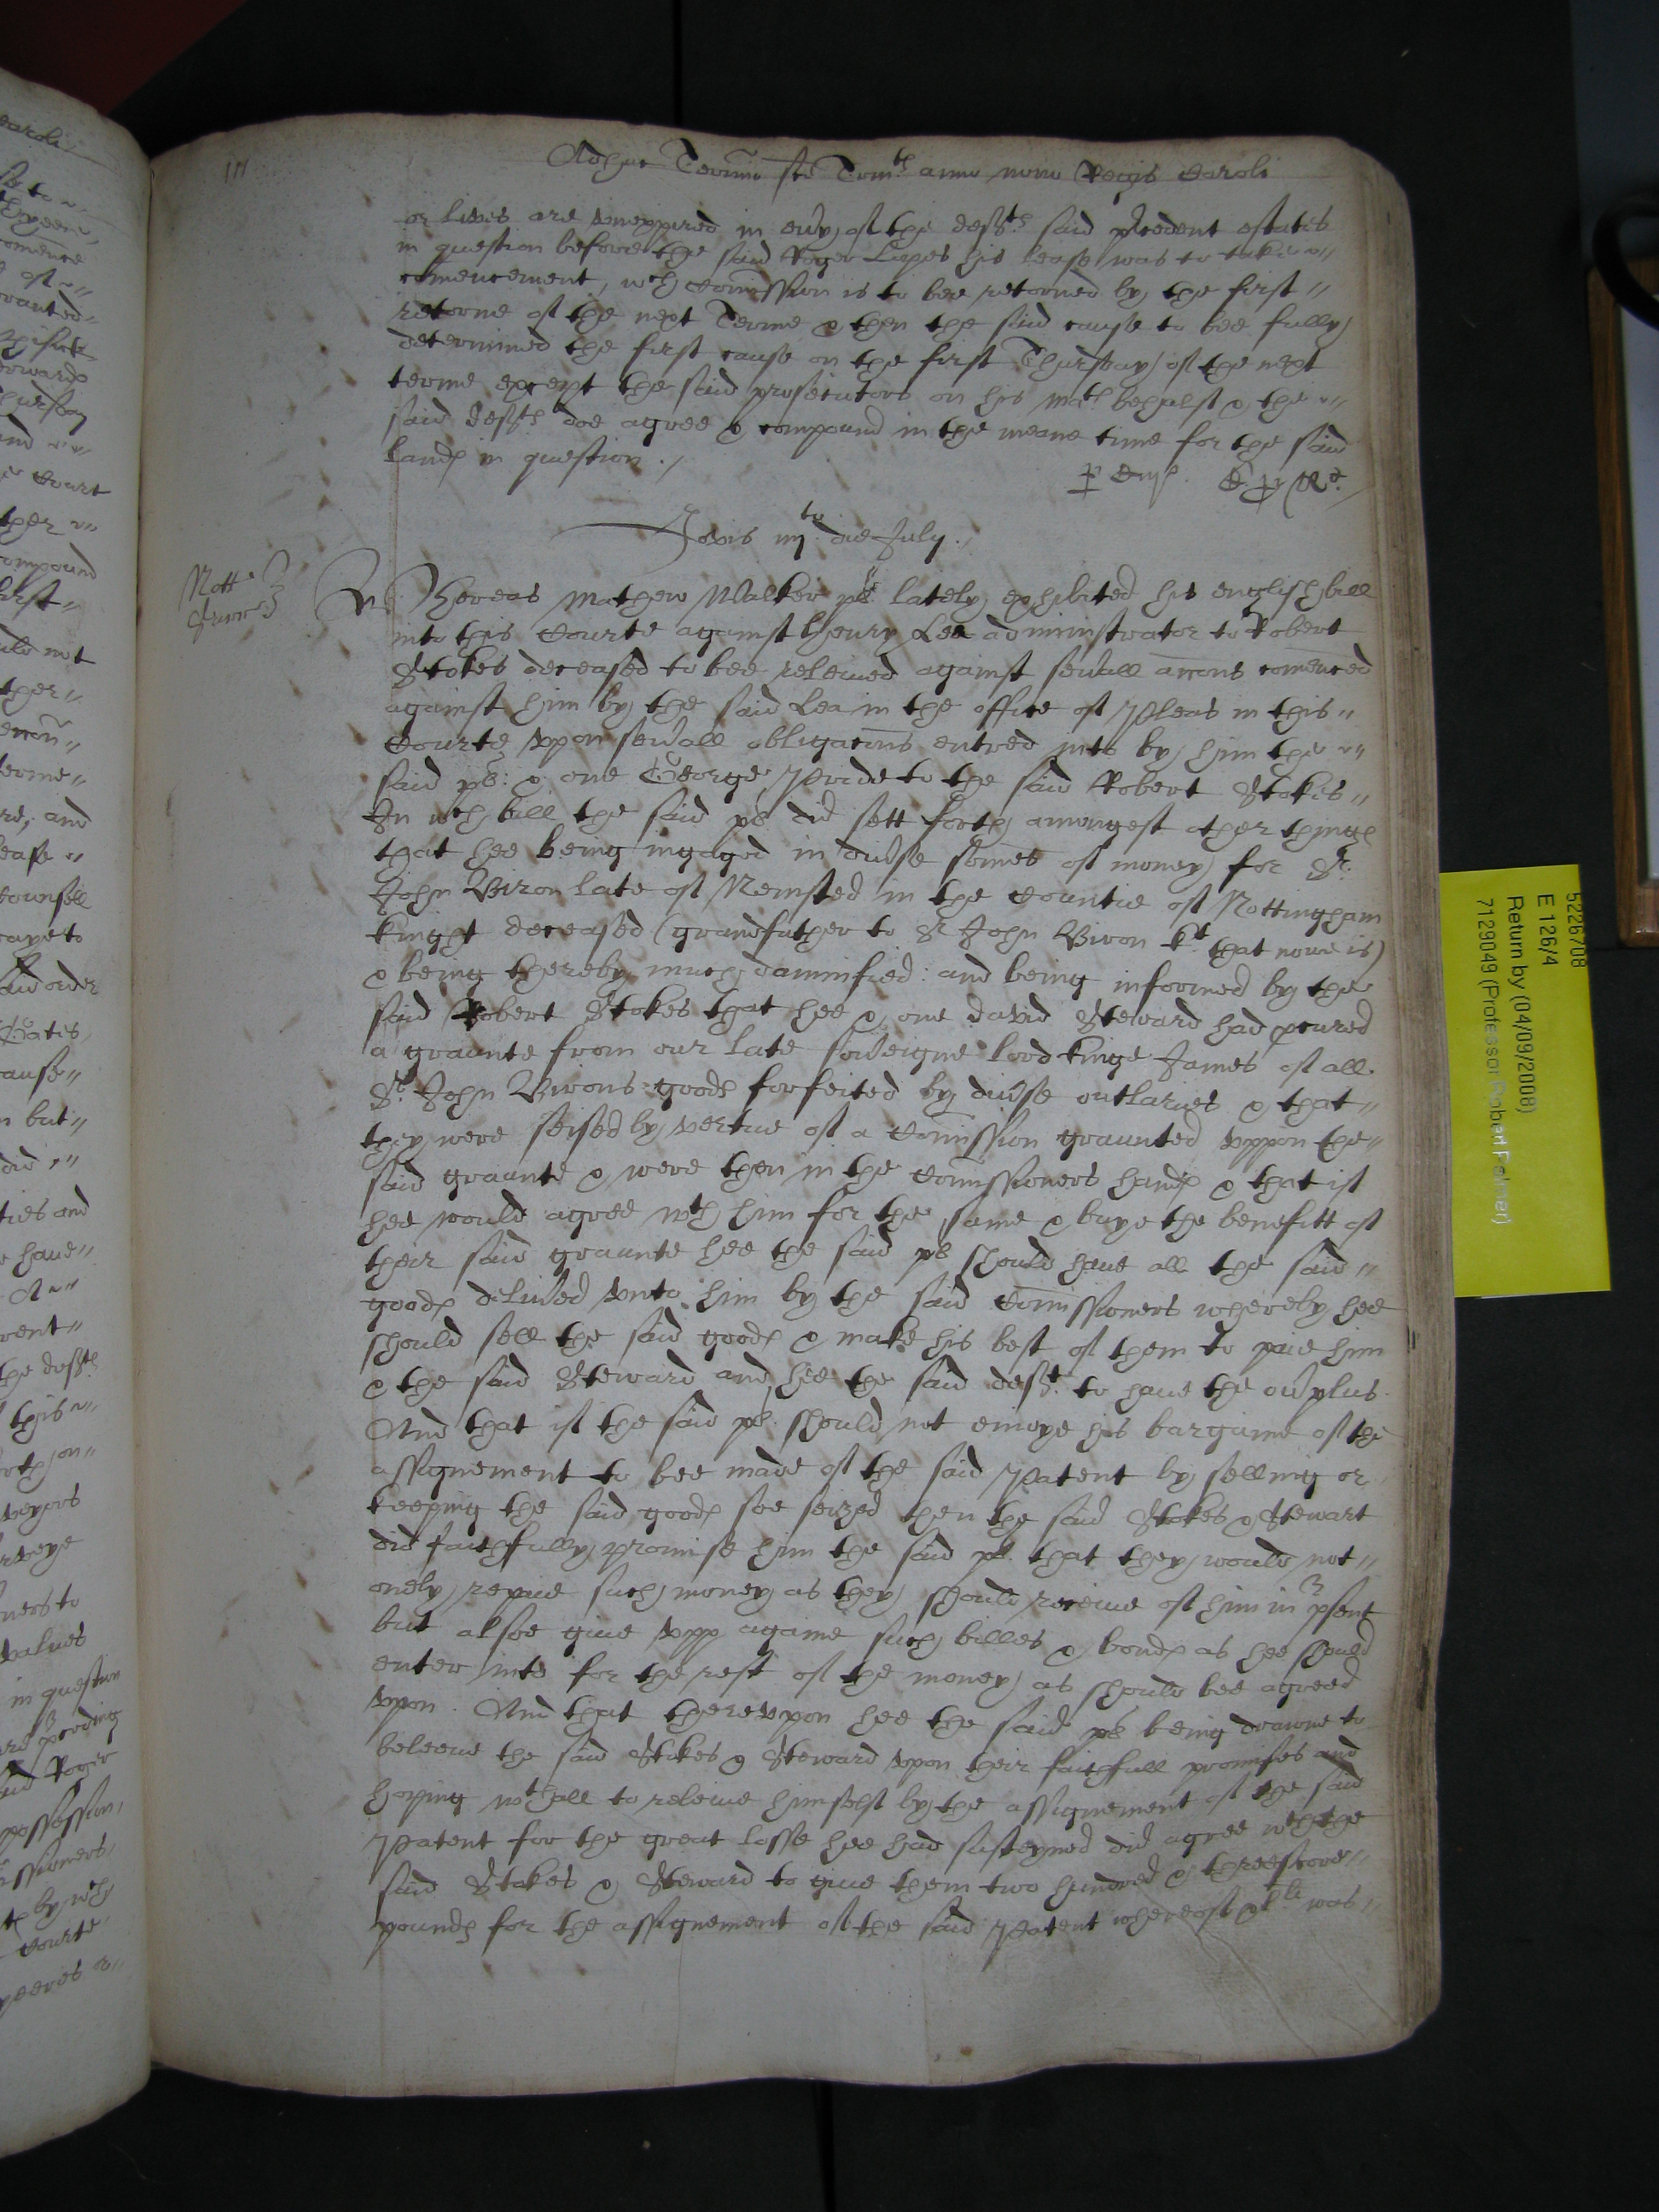 Adhuc Termino sce Trinit anno nono Regis Caroli
or lives are unexpired in eny of the defts said precedent estates
in question before the said Roger Lopes his lease was to take
comencement, wch Comission is to bee retorned by the first
retorne of the next Terme & then the said cause to bee fully
determined the first cause on the first Thursday of the next
terme except the said prosecutors on his mats behalf & the
said defts doe agree & compound in the meane time for the said
lands in question.
Jovis iijto die July.
Nott
Whereas Mathew Walker pl lately exhibited his english bill
into this Courte against Henry Lea administrator to Robert
Stokes deceased to bee releived against sevall accons comenced
against him by the said Lea in the office of Pleas in this
Courte upon sevall obligacons entred into by him the
said pl: & one George Pride to the said Robert Stokes
In wch bill the said pl did sett forth amongest other things
that hee being ingaged in divse somes of money for Sr.
John Biron late of Newsted in the Countie of Nottingham
knight deceased (grandfather to Sr John Biron kt that nowe is)
& being thereby much damnified: and being informed by the
said Robert Stokes that hee & one David Steward had pcured
a graunte from our late soveigne lord kinge James of all
Sr. John Birons goods forfeited by divse outlaries & that
they were seised by vertue of a Comission graunted uppon the
said graunte & were then in the Comissioners hands & that if
hee would agree wth him for the same & buye the benefitt of
their said graunte hee the said pl should have all the said
goods delived unto him by the said Comissioners whereby hee
should sell the said goods & make his best of them to paie him
& the said Steward and hee the said deft to have the ovplus
And that if the said pl. should not enioye his bargaine of the
assignement to bee made of the said Patent by selling or
keeping the said goods soe seized then the said Stokes & Stewart
did faithfully promise him the said pl. that they would not
onely repaie such money as they should receive of him in psent
but alsoe give upp againe such billes & bonds as hee should
enter into for the rest of the money as should bee agreed
upon. And that thereupon hee the said pl being drawne to
beleeve the said Stokes & Steward upon their faithfull promises and
hoping wthall to releive himself by the assignement of the said
Patent for the great losse hee had susteyned did agree wth the
said Stokes & Steward to give them two hundred & threescore
pounds for the assignement of the said Patent whereof xlli was
5226708
E 126/4
Return by (04/09/2008)
7129049 (Professor Robert Palmer)